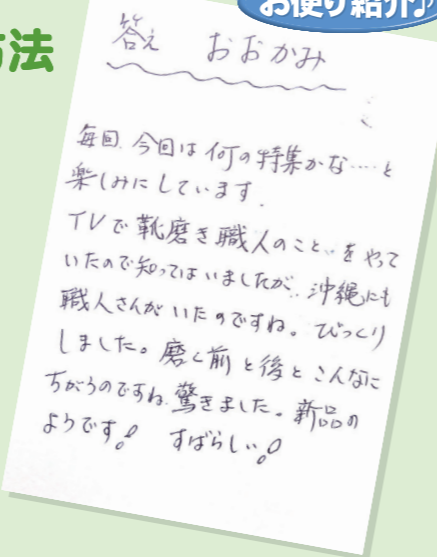 お便り紹介♪
方法
答え おおかみ
毎回、今回は何の特集かな…‥と
楽しみにしています.
TVで靴磨き職人のこと‥をやって
いたので知ってはいましたが‥沖縄にも
職人さんがいたのですね。びっくり
しました。磨く前と後とこんなに
ちがうのですね.驚きました。新品の
ようです! すばらしい!